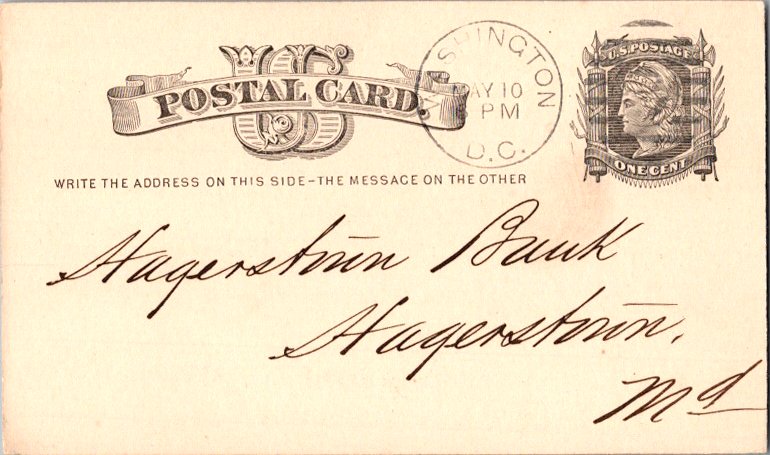 US
POSTAL CARD.
WASHINGTON
MAY 10
PM
D.C.
U.S. POSTAGE
ONE CENT
WRITE THE ADDRESS ON THIS SIDE–THE MESSAGE ON THE OTHER
Hagerstown Bank
Hagerstown,
Md